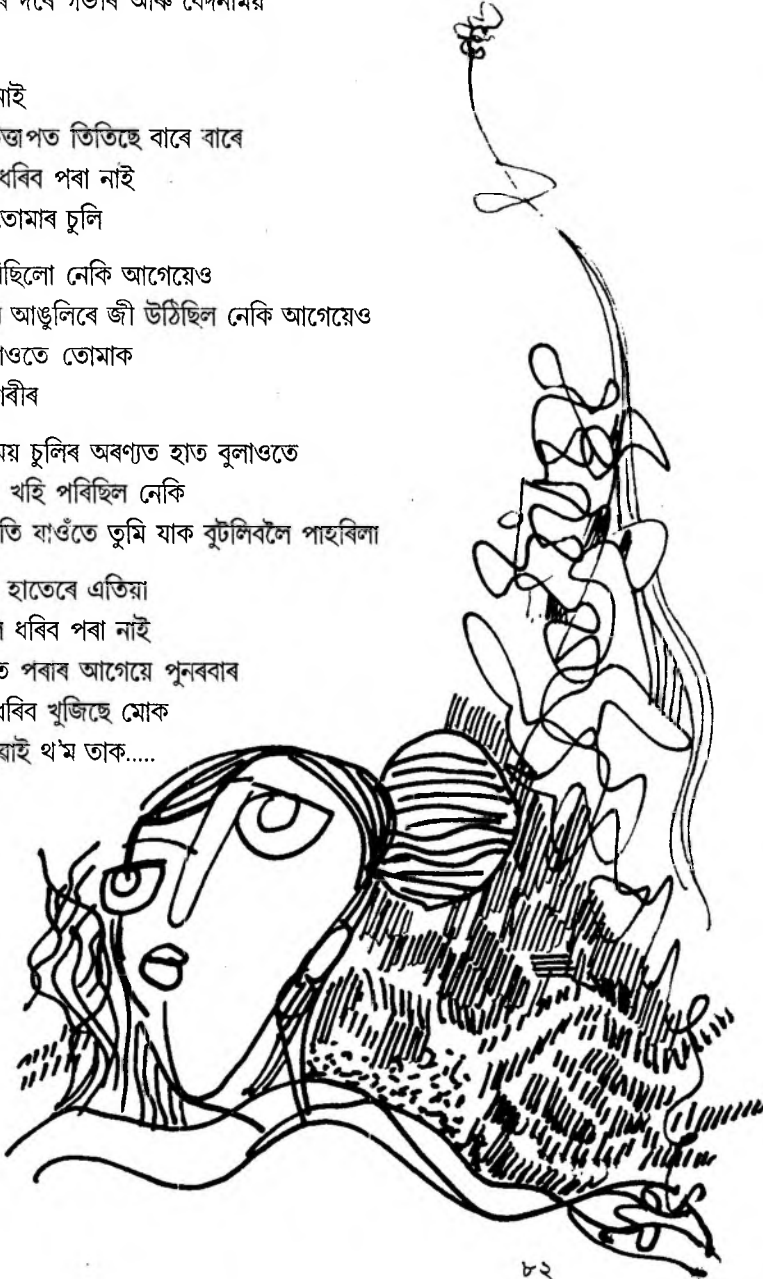 দৰে গভীৰ আৰু বেদনাময়
নাই
তিতিছে বাৰে বাৰে
ধৰিব পৰা নাই
তোমাৰ চুলি
নেকি আগেয়েও
আঙুলিৰে জী উঠিছিল নেকি আগেয়েও
তোমাক
চুলিৰ অৰণ্যত হাত বুলাওতে
খহি পৰিছিল নেকি
যাওঁতে তুমি যাক বুটলিবলৈ পাহৰিলা
হাতেৰে এতিয়া
ধৰিব পৰা নাই
পৰাৰ আগেয়ে পুনৰবাৰ
ধৰিব খুজিছে মোক
থ'ম তাক.....
৮২